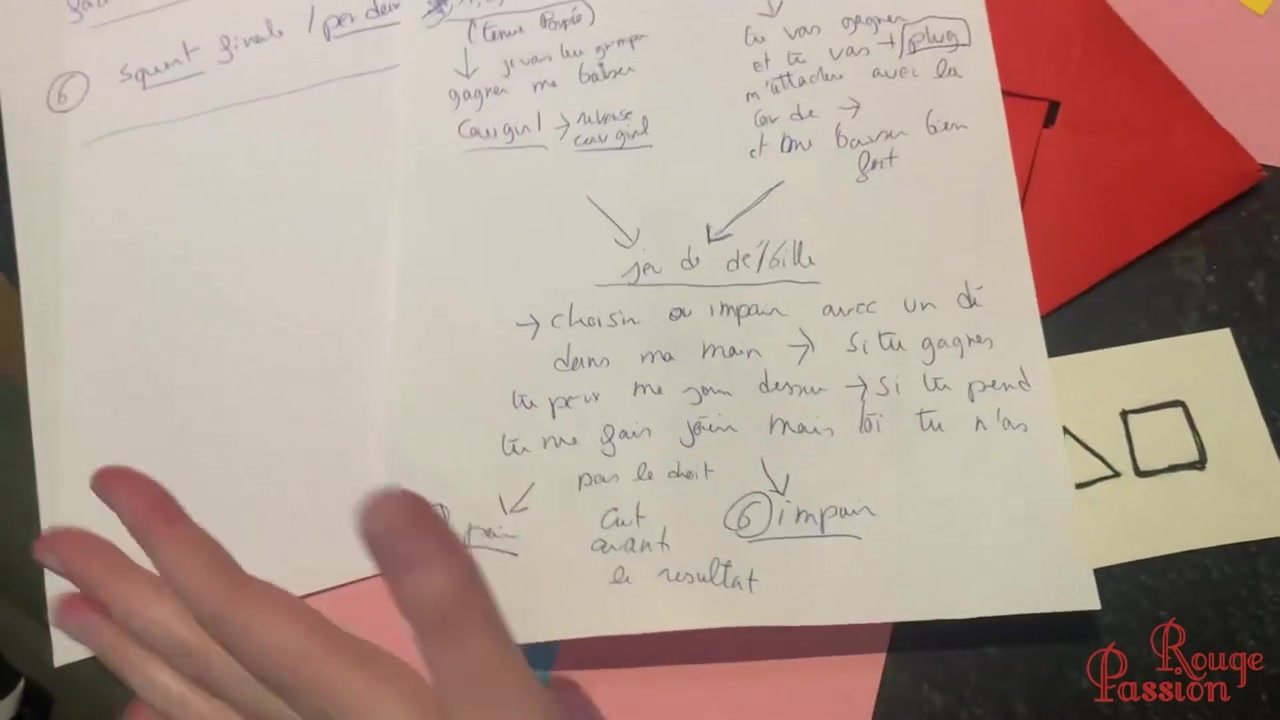 6 Squint finale / perdu
(tenue Poupée)
je vais leur grimper
gagner me baiser
Cowgirl → reverse
cow girl
tu vas gagner
et tu vas → plug
m'attacher avec la
corde →
et me baiser bien
fort
jeu de dé/bille
→ choisir ou impair avec un dé
dans ma main → si tu gagnes
tu peux me jouir dessus → si tu perd
tu me fais jouir mais toi tu n'as
pas le droit
pair
Cut
avant
le resultat
6 impair
Rouge
Passion